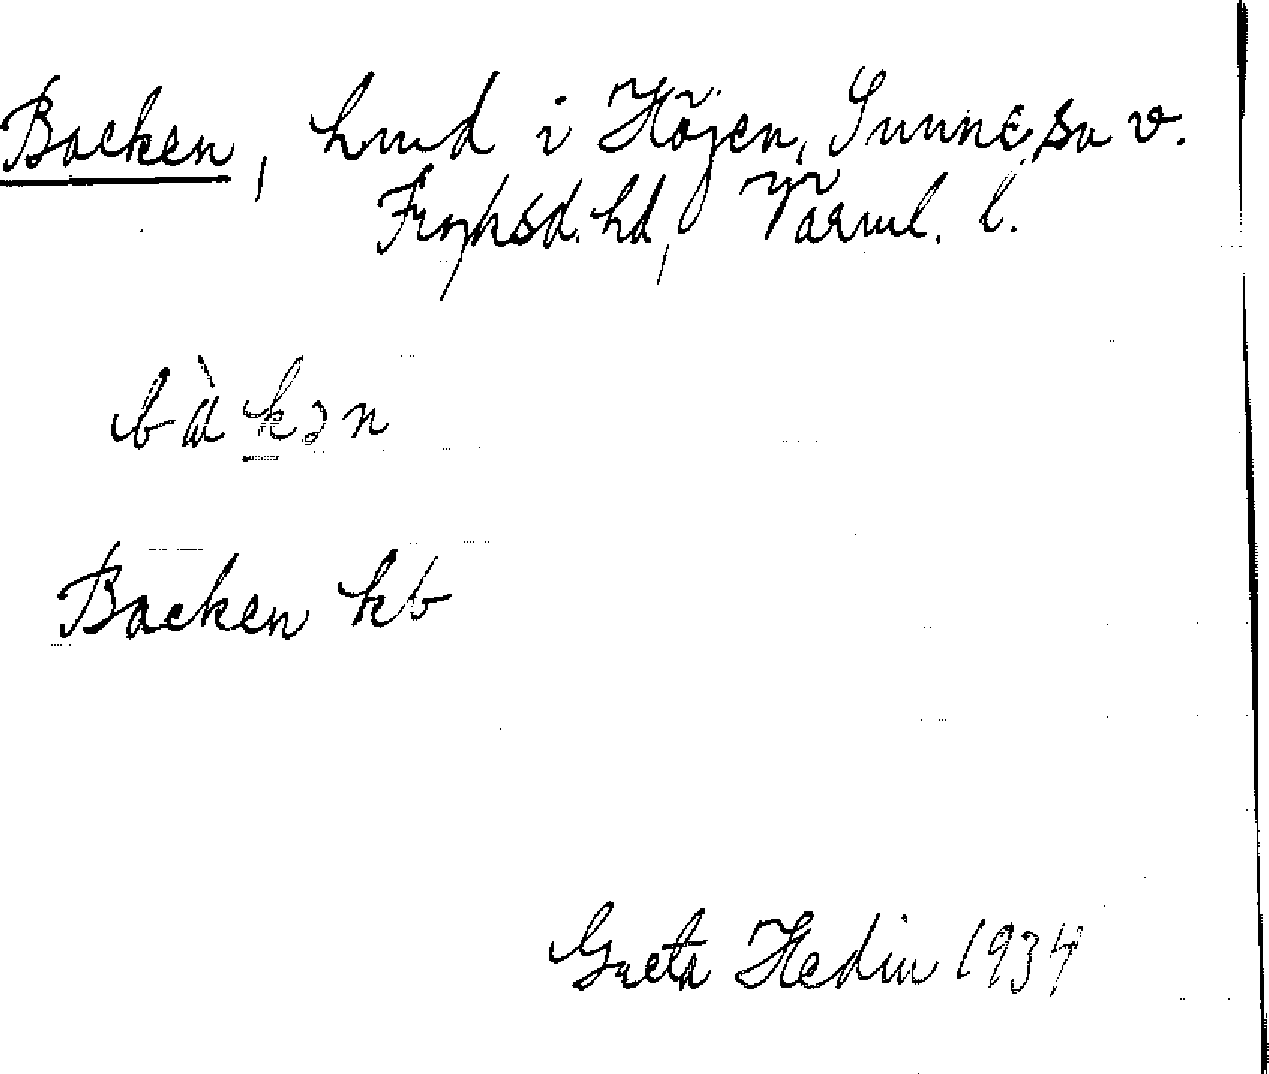 Backen, hmd i Höjen, Sunne sn v.
Fryksd. hd, Värml. l.
bàkən
Backen kb
Greta Hedin 1934